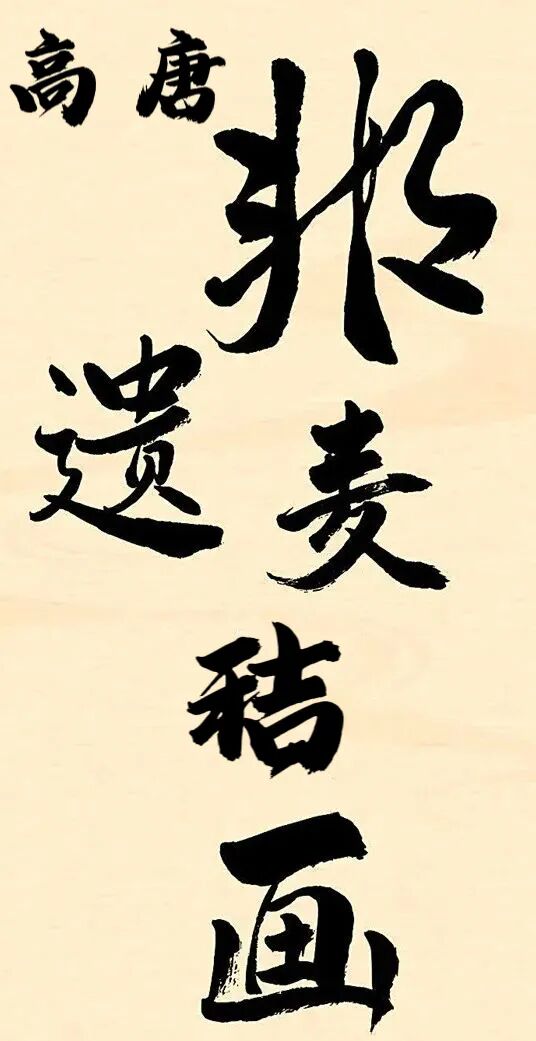 高唐
非遗
麦秸画